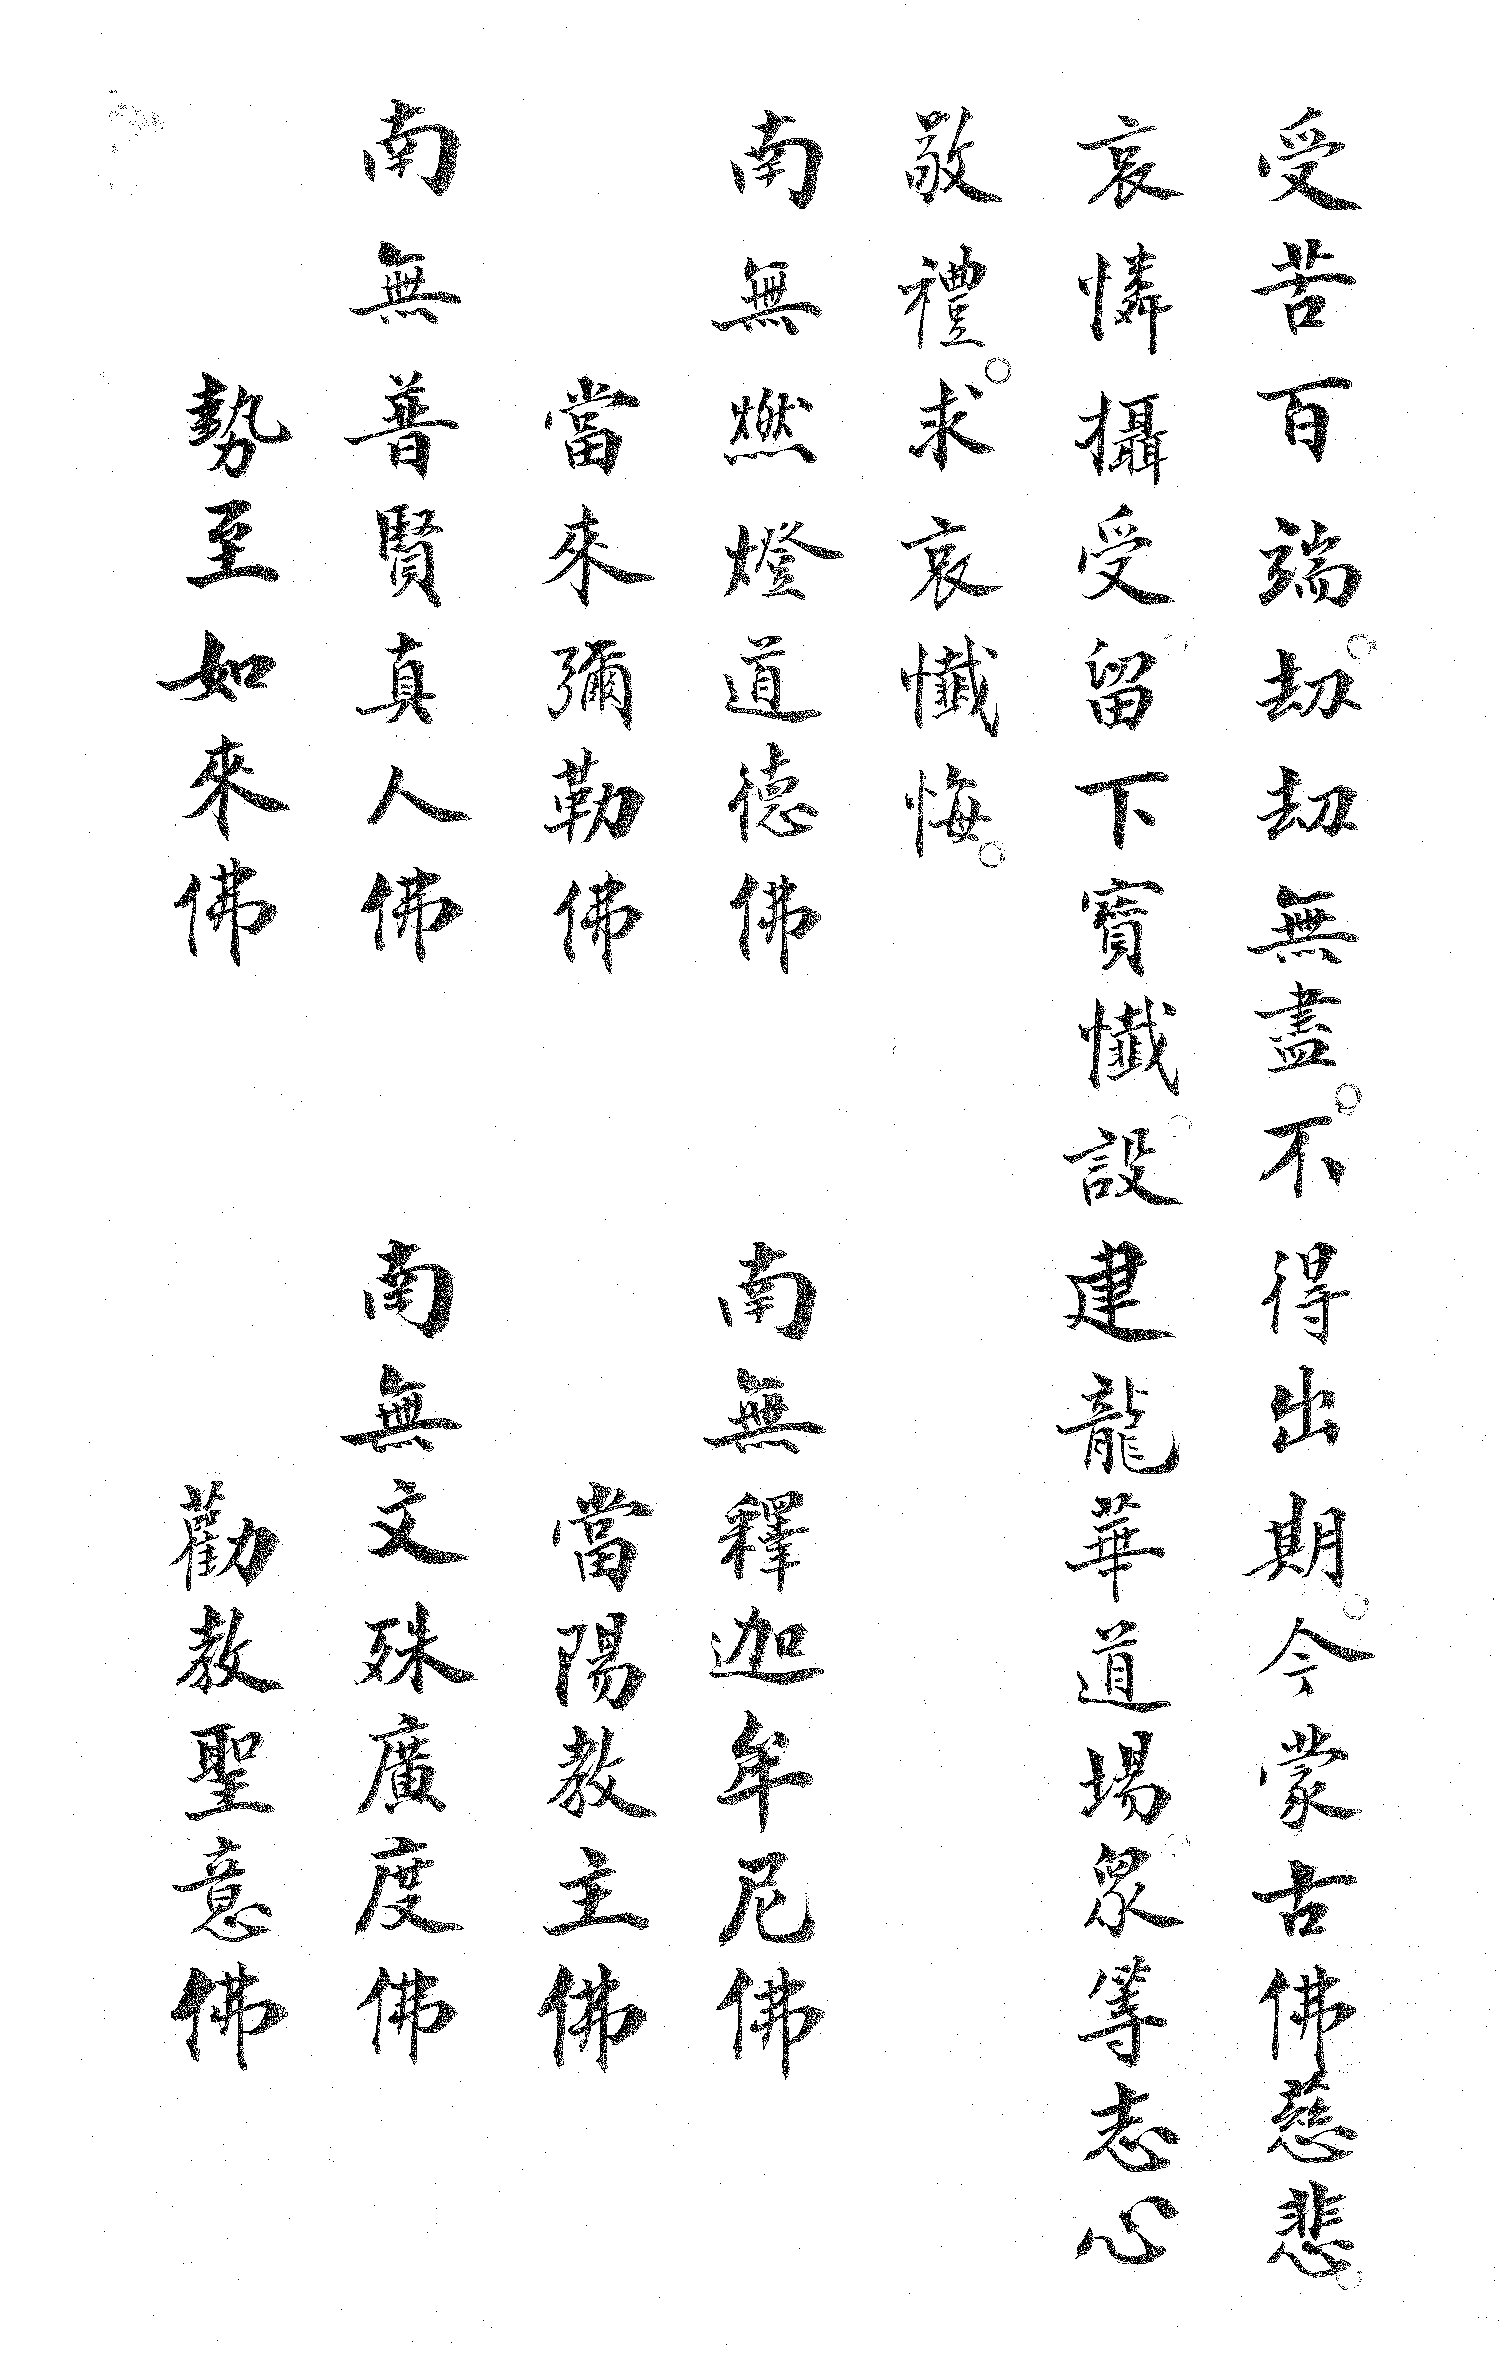 受苦百端。劫劫無盡。不得出期。今蒙古佛慈悲。
哀憐攝受。留下寶懺。設建龍華道場。眾等志心
敬禮。求哀懺悔。
南無燃燈道德佛　南無釋迦牟尼佛
當來彌勒佛　當陽教主佛
南無普賢真人佛　南無文殊廣度佛
勢至如來佛　勸教聖意佛